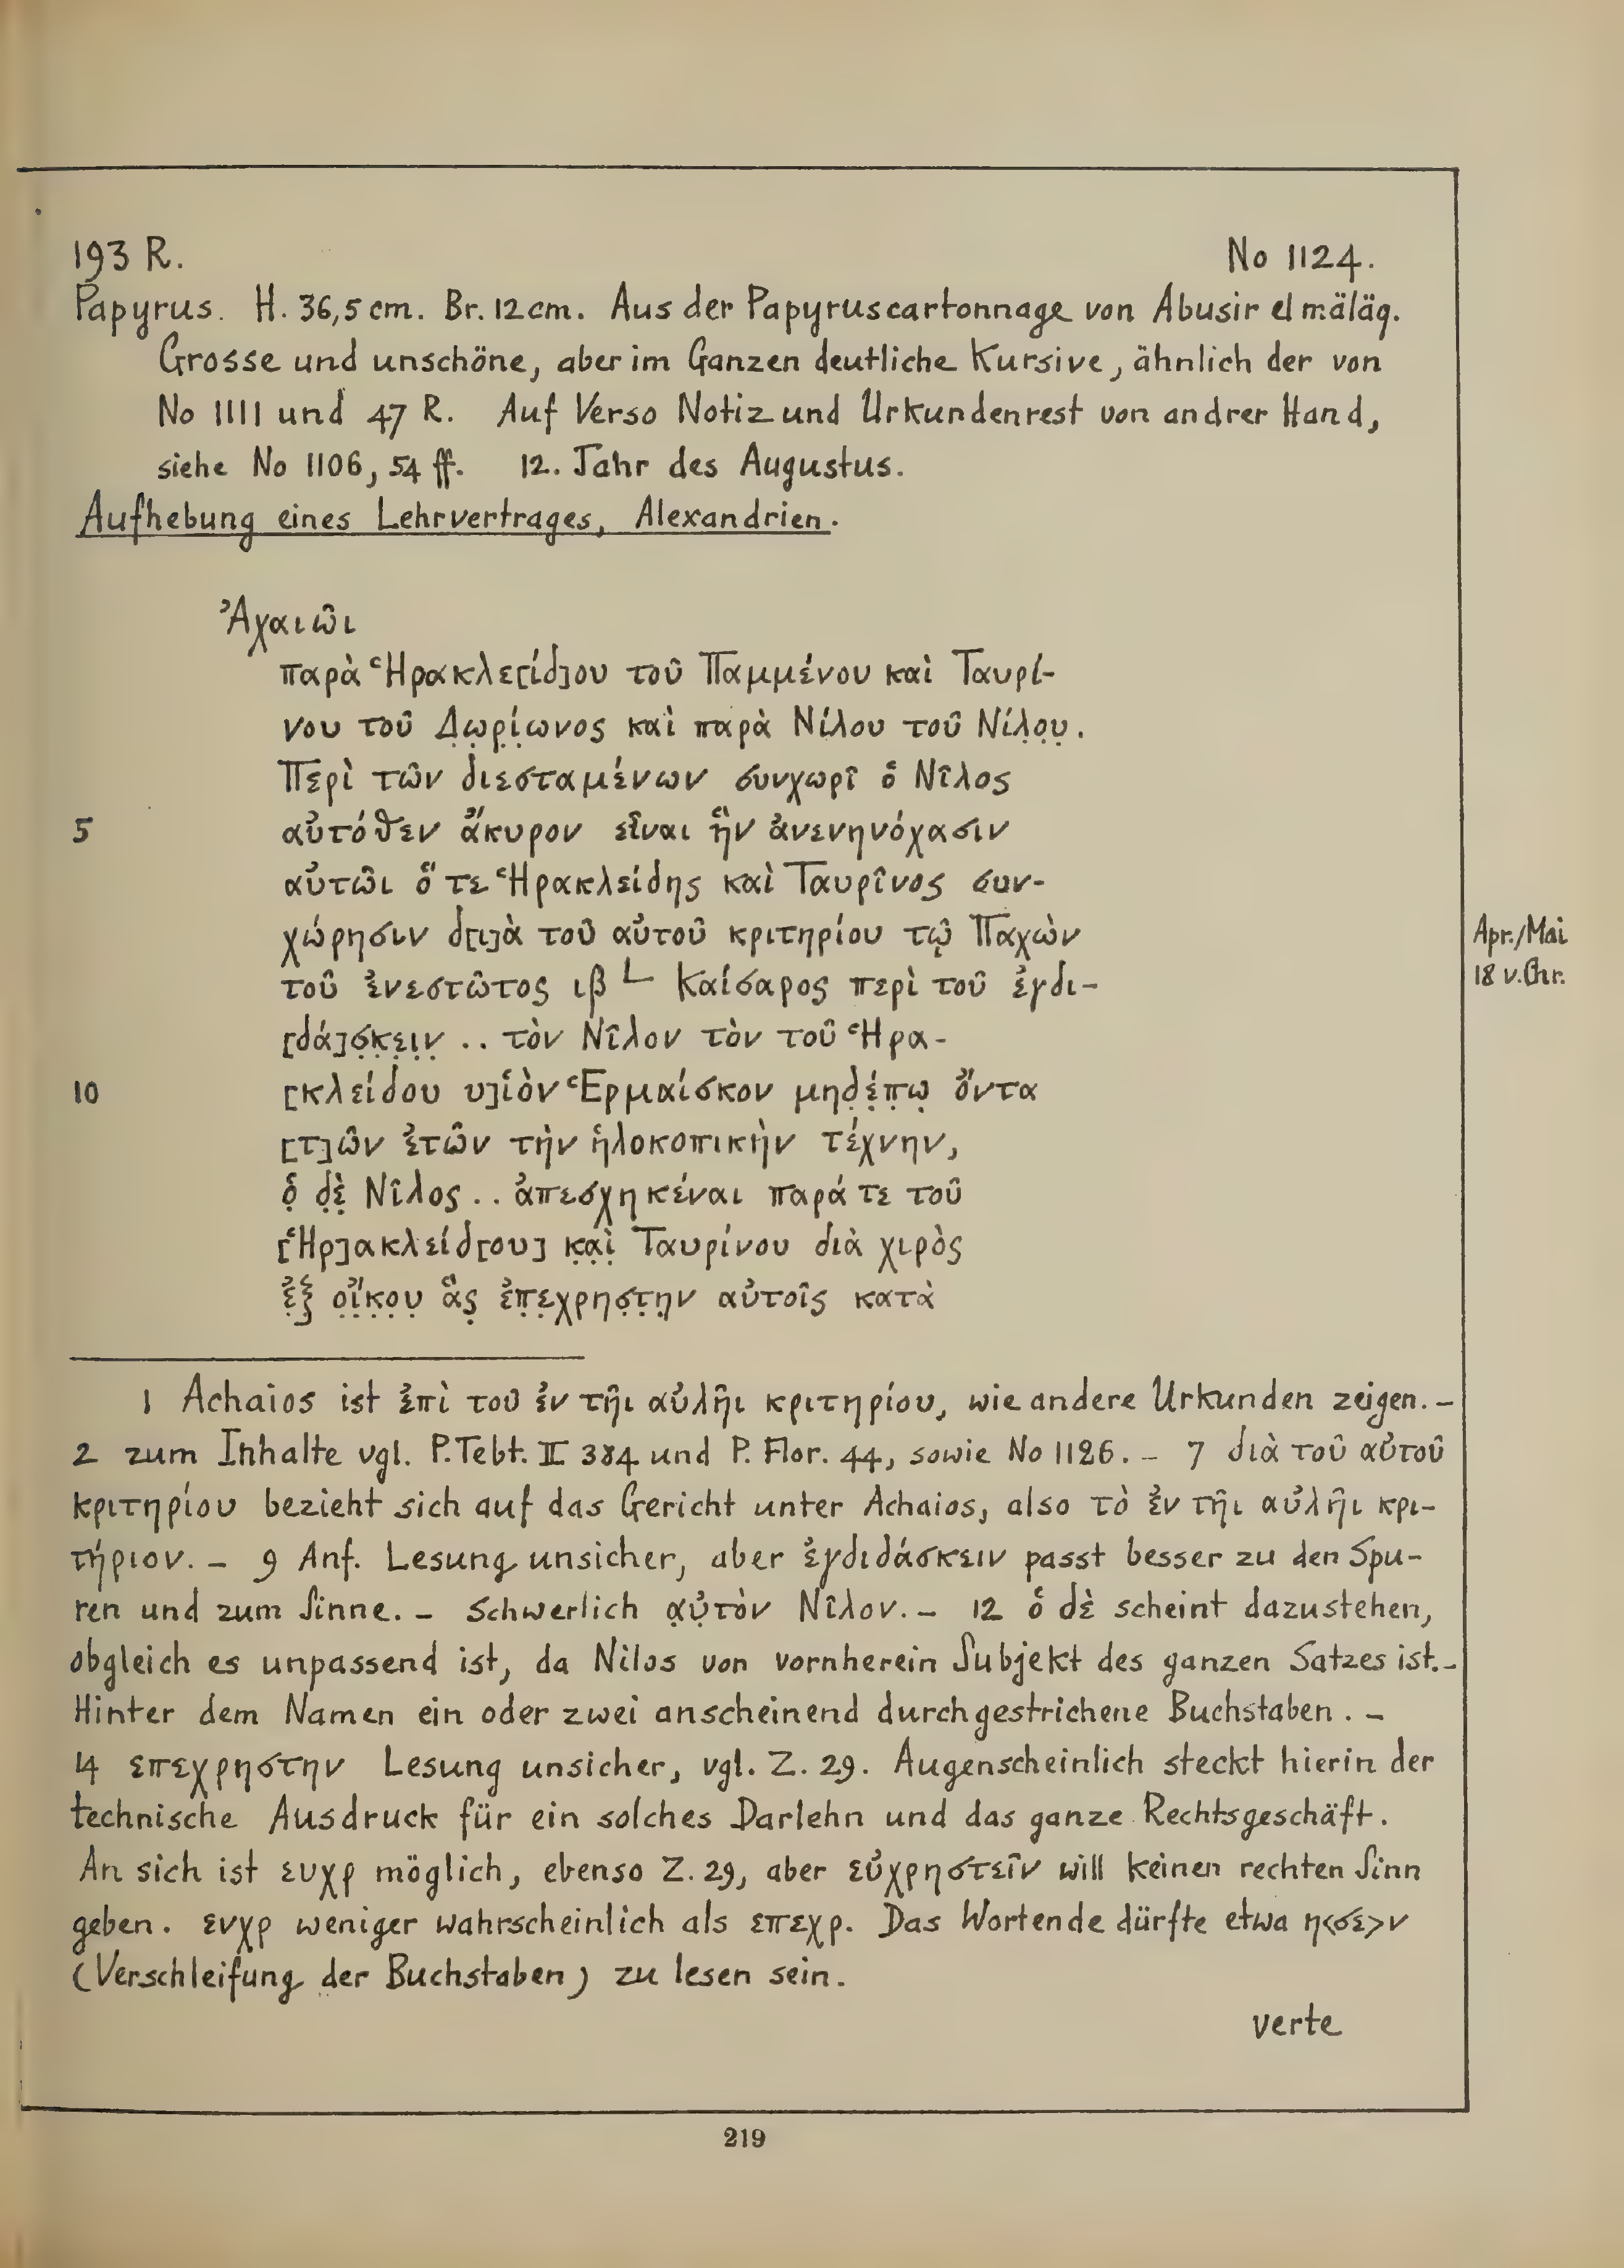 193 R. No 1124.
Papyrus. H. 36,5 cm. Br. 12 cm. Aus der Papyruscartonnage von Abusir el mäläq.
Grosse und unschöne, aber im Ganzen deutliche Kursive, ähnlich der von
No 1111 und 47 R. Auf Verso Notiz und Urkundenrest von andrer Hand,
siehe No 1106, 54 ff. 12. Jahr des Augustus.
Aufhebung eines Lehrvertrages, Alexandrien.
Ἀχαιῶι
παρὰ Ἡρακλε[ίδ]ου τοῦ Παμμένου καὶ Ταυρί-
νου τοῦ Δ̣ω̣ρ̣ί̣ωνος καὶ παρὰ Νίλου τοῦ Νίλ̣ο̣υ̣.
Περὶ τῶν διεσταμένων συνχωρῖ ὁ Νῖλος
5 αὐτόθεν ἄκυρον εἶναι ἣν ἀνενηνόχασιν
αὐτῶι ὅ τε Ἡρακλείδης καὶ Ταυρῖνος συν-
χώρησιν δ[ι]ὰ τοῦ αὐτοῦ κριτηρίου τῷ Παχὼν
Apr./Mai
τοῦ ἐνεστῶτος ιβ L Καίσαρος περὶ τοῦ ἐγδι-
18 v. Chr.
[δά]σ̣κ̣ε̣ι̣ν̣ .. τὸν Νῖλον τὸν τοῦ Ἡρα-
10 [κλείδου υ]ἱὸν Ἑρμαίσκον μηδ̣έ̣π̣ω̣ ὄντα
[τ]ῶν ἐτῶν τὴν ἡλοκοπικὴν τέχνην,
ὁ̣ δ̣ὲ̣ Νῖλος .. ἀπεσχηκέναι παρά τε τοῦ
[Ἡρ]ακλείδ[ου] κ̣α̣ὶ̣ Ταυρίνου διὰ χιρὸς
ἐ̣ξ̣ ο̣ἴ̣κ̣ο̣υ̣ ἃς̣ ἐ̣π̣ε̣χρησ̣τ̣η̣ν αὐτοῖς κατὰ
1 Achaios ist ἐπὶ τοῦ ἐν τῆι αὐλῆι κριτηρίου, wie andere Urkunden zeigen. –
2 zum Inhalte vgl. P. Tebt. II 384 und P. Flor. 44, sowie No 1126. – 7 διὰ τοῦ αὐτοῦ
κριτηρίου bezieht sich auf das Gericht unter Achaios, also τὸ ἐν τῆι αὐλῆι κρι-
τήριον. – 9 Anf. Lesung unsicher, aber ἐγδιδάσκειν passt besser zu den Spu-
ren und zum Sinne. – Schwerlich α̣ὐ̣τὸν Νῖλον. – 12 ὁ δὲ scheint dazustehen,
obgleich es unpassend ist, da Nilos von vornherein Subjekt des ganzen Satzes ist. –
Hinter dem Namen ein oder zwei anscheinend durchgestrichene Buchstaben. –
14 επεχρηστην Lesung unsicher, vgl. Z. 29. Augenscheinlich steckt hierin der
technische Ausdruck für ein solches Darlehn und das ganze Rechtsgeschäft.
An sich ist ευχρ möglich, ebenso Z. 29, aber εὐχρηστεῖν will keinen rechten Sinn
geben. ενχρ weniger wahrscheinlich als επεχρ. Das Wortende dürfte etwa η<σε>ν
(Verschleifung der Buchstaben) zu lesen sein.
verte
219